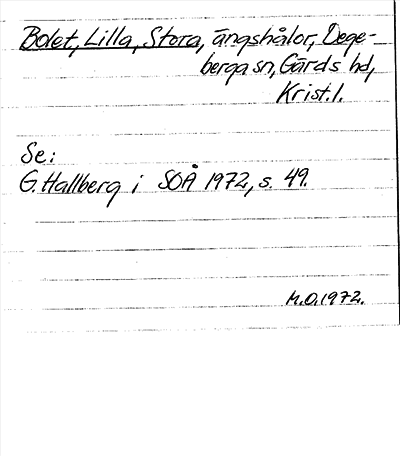 Bolet, Lilla, Stora, ängshålor, Dege-
berga sn, Gärds hd,
Krist. l.
Se:
G. Hallberg i SOÅ 1972, s. 49.
M.O. 1972.